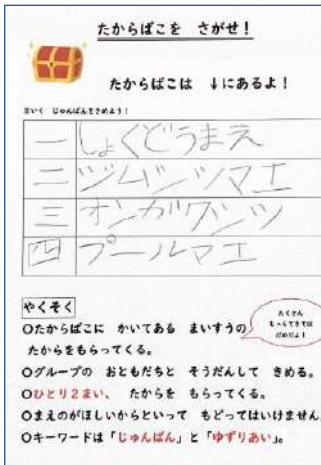 たからばこを さがせ！
たからばこは ↓にあるよ！
※いく じゅんばんをきめよう！
一 しょくどうまえ
二 ジムシツマエ
三 オンガクシツ
四 プールマエ
やくそく
たくさん
もらってきては
だめだよ！
〇たからばこに かいてある まいすうの
たからをもらってくる。
〇グループの おともだちと そうだんして きめる。
〇ひとり２まい、 たからを もらってくる。
〇まえのがほしいからといって もどってはいけません
〇キーワードは「じゅんばん」と「ゆずりあい」。